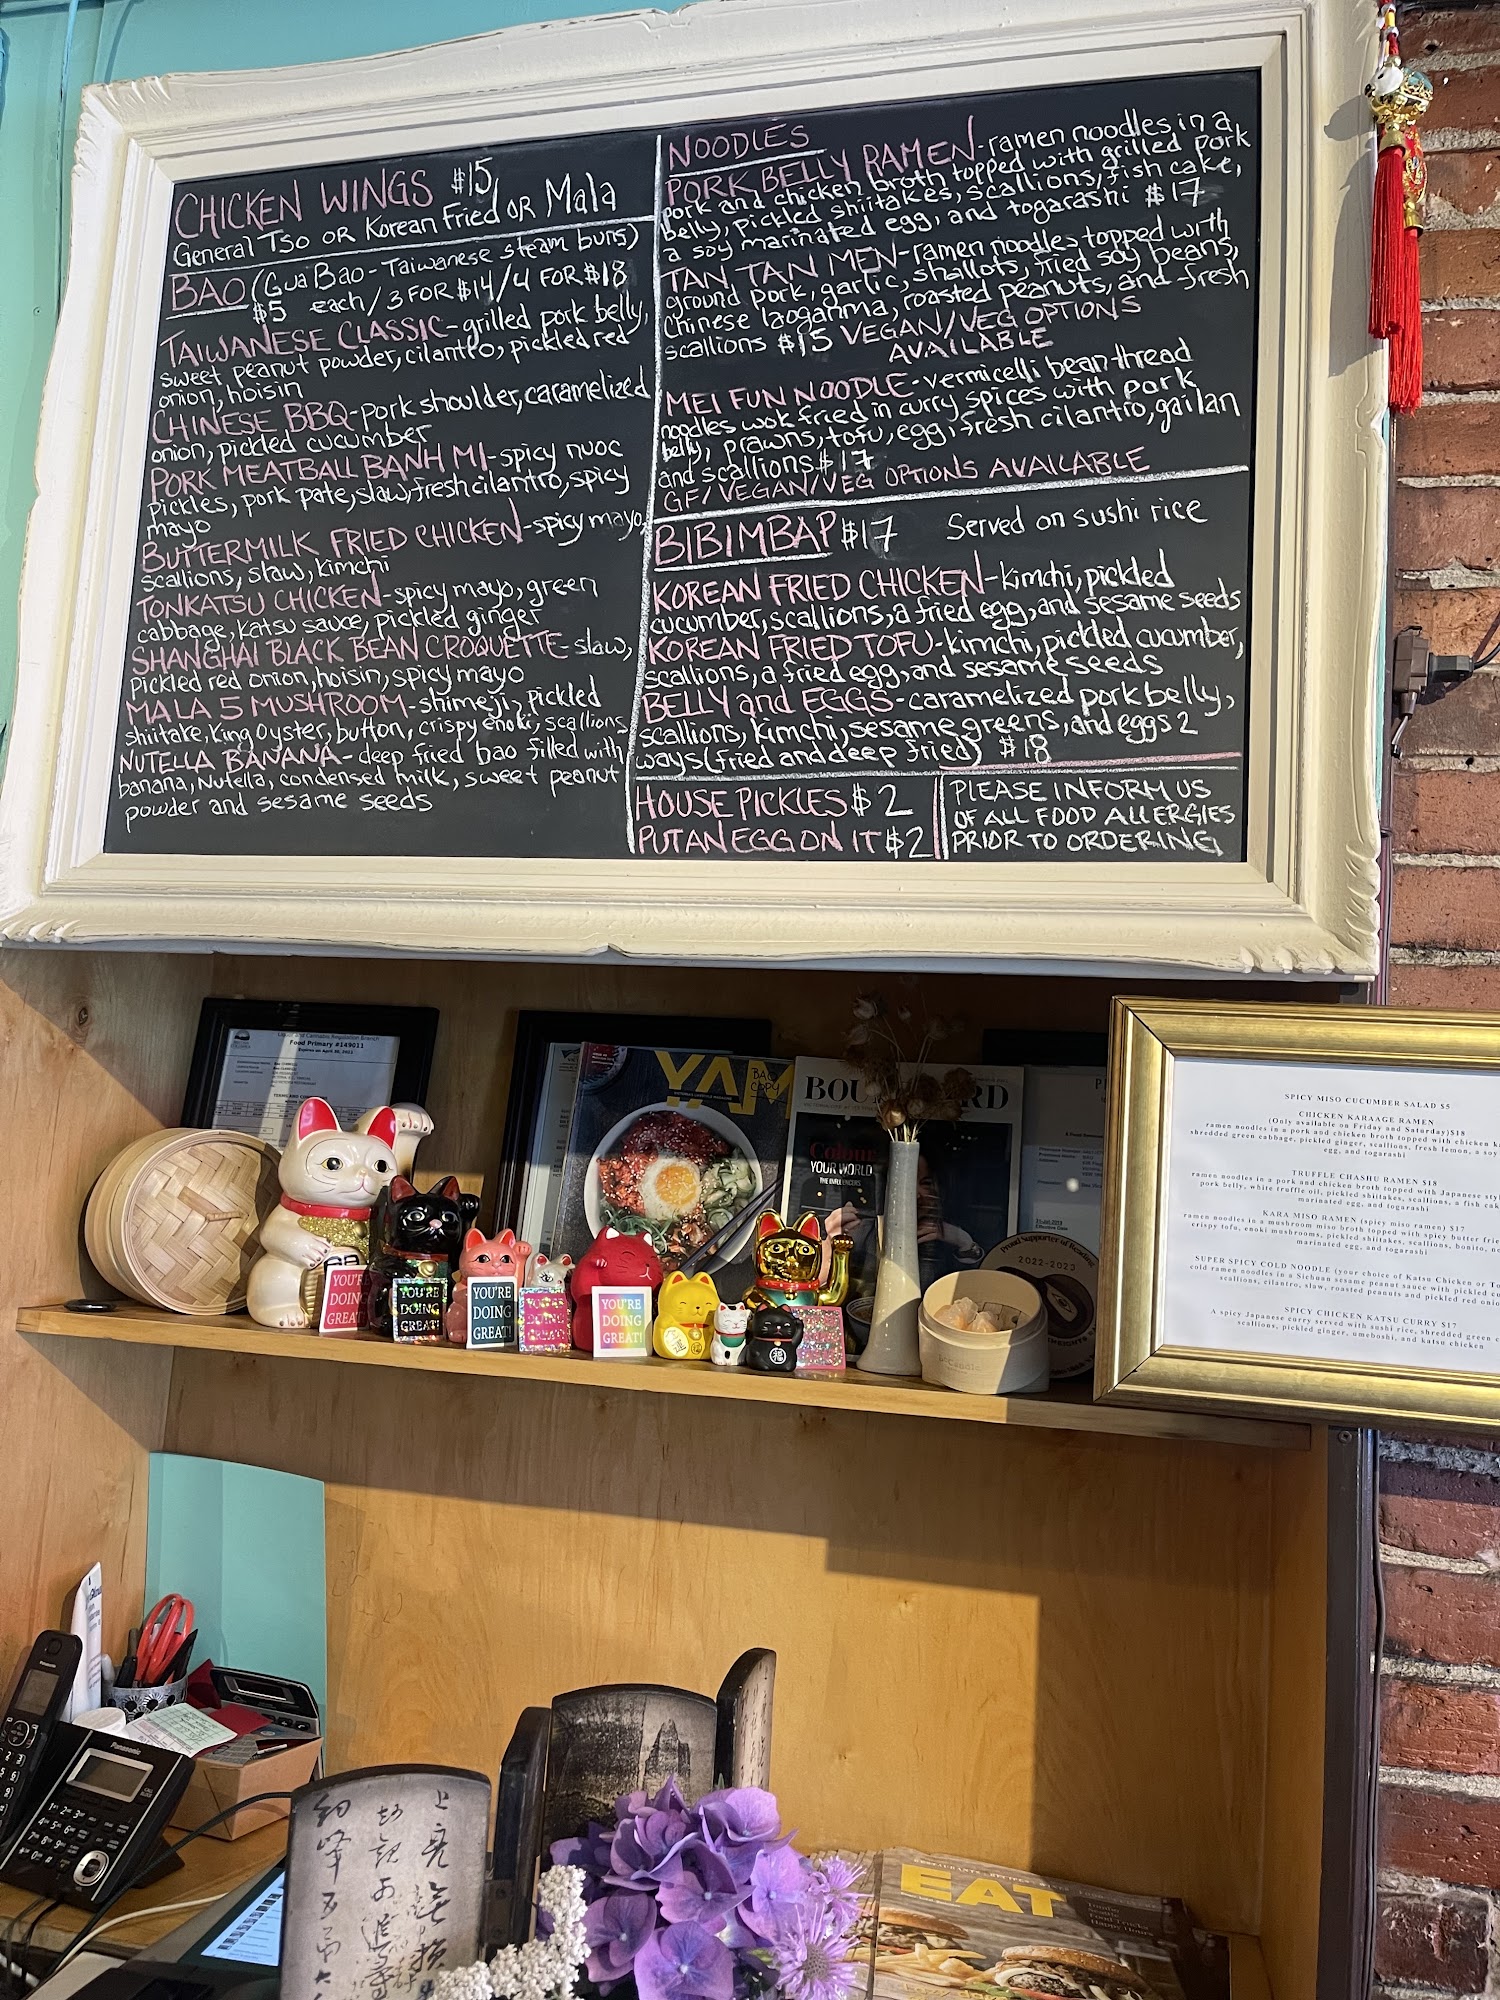 CHICKEN WINGS $15
General Tso OR Korean Fried OR Mala
BAO (Gua Bao - Taiwanese steam buns)
$5 each / 3 FOR $14 / 4 FOR $18
TAIWANESE CLASSIC - grilled pork belly,
sweet peanut powder, cilantro, pickled red
onion, hoisin
CHINESE BBQ - pork shoulder, caramelized
onion, pickled cucumber
PORK MEATBALL BANH MI - spicy nuoc
pickles, pork pate, slaw, fresh cilantro, spicy
mayo
BUTTERMILK FRIED CHICKEN - spicy mayo,
scallions, slaw, kimchi
TONKATSU CHICKEN - spicy mayo, green
cabbage, katsu sauce, pickled ginger
SHANGHAI BLACK BEAN CROQUETTE - slaw,
pickled red onion, hoisin, spicy mayo
MALA 5 MUSHROOM - shimeji, pickled
shiitake, king oyster, button, crispy enoki, scallions
NUTELLA BANANA - deep fried bao filled with
banana, Nutella, condensed milk, sweet peanut
powder and sesame seeds
NOODLES
PORK BELLY RAMEN - ramen noodles in a
pork and chicken broth topped with grilled pork
belly, pickled shiitakes, scallions, fish cake,
a soy marinated egg, and togarashi $17
TAN TAN MEN - ramen noodles topped with
ground pork, garlic, shallots, fried soy beans,
Chinese laoganma, roasted peanuts, and fresh
scallions $15 VEGAN/VEG OPTIONS
AVAILABLE
MEI FUN NOODLE - vermicelli bean thread
noodles wok fried in curry spices with pork
belly, prawns, tofu, egg, fresh cilantro, gailan
and scallions $17
GF/VEGAN/VEG OPTIONS AVAILABLE
BIBIMBAP $17 Served on sushi rice
KOREAN FRIED CHICKEN - kimchi, pickled
cucumber, scallions, a fried egg, and sesame seeds
KOREAN FRIED TOFU - kimchi, pickled cucumber,
scallions, a fried egg, and sesame seeds
BELLY and EGGS - caramelized pork belly,
scallions, kimchi, sesame greens, and eggs 2
ways (fried and deep fried) $18
HOUSE PICKLES $2
PUT AN EGG ON IT $2
PLEASE INFORM US
OF ALL FOOD ALLERGIES
PRIOR TO ORDERING
Food Primary #149011
YAM
BAO
COPY
Colour
YOUR WORLD
THE INFLUENCERS
Proud Supporter of
2022-2023
SPICY MISO CUCUMBER SALAD $5
CHICKEN KARAAGE RAMEN
(Only available on Friday and Saturday) $18
ramen noodles in a pork and chicken broth topped with chicken
shredded green cabbage, pickled ginger, scallions, fresh lemon, a soy
egg, and togarashi
TRUFFLE CHASHU RAMEN $18
ramen noodles in a pork and chicken broth topped with Japanese
pork belly, white truffle oil, pickled shiitakes, scallions, a fish
marinated egg, and togarashi
KARA MISO RAMEN (spicy miso ramen) $17
ramen noodles in a mushroom miso broth topped with spicy butter
crispy tofu, enoki mushrooms, pickled shiitakes, scallions, bonito,
marinated egg, and togarashi
SUPER SPICY COLD NOODLE (your choice of Katsu Chicken or
cold ramen noodles in a Sichuan sesame peanut sauce with pickled
scallions, cilantro, slaw, roasted peanuts and pickled red
SPICY CHICKEN KATSU CURRY $17
A spicy Japanese curry served with sushi rice, shredded green
scallions, pickled ginger, umeboshi, and katsu chicken
YOU'RE
DOING
GREAT!
YOU'RE
DOING
GREAT!
YOU'RE
DOING
GREAT!
YOU'RE
DOING
GREAT!
YOU'RE
DOING
GREAT!
Panasonic
EAT